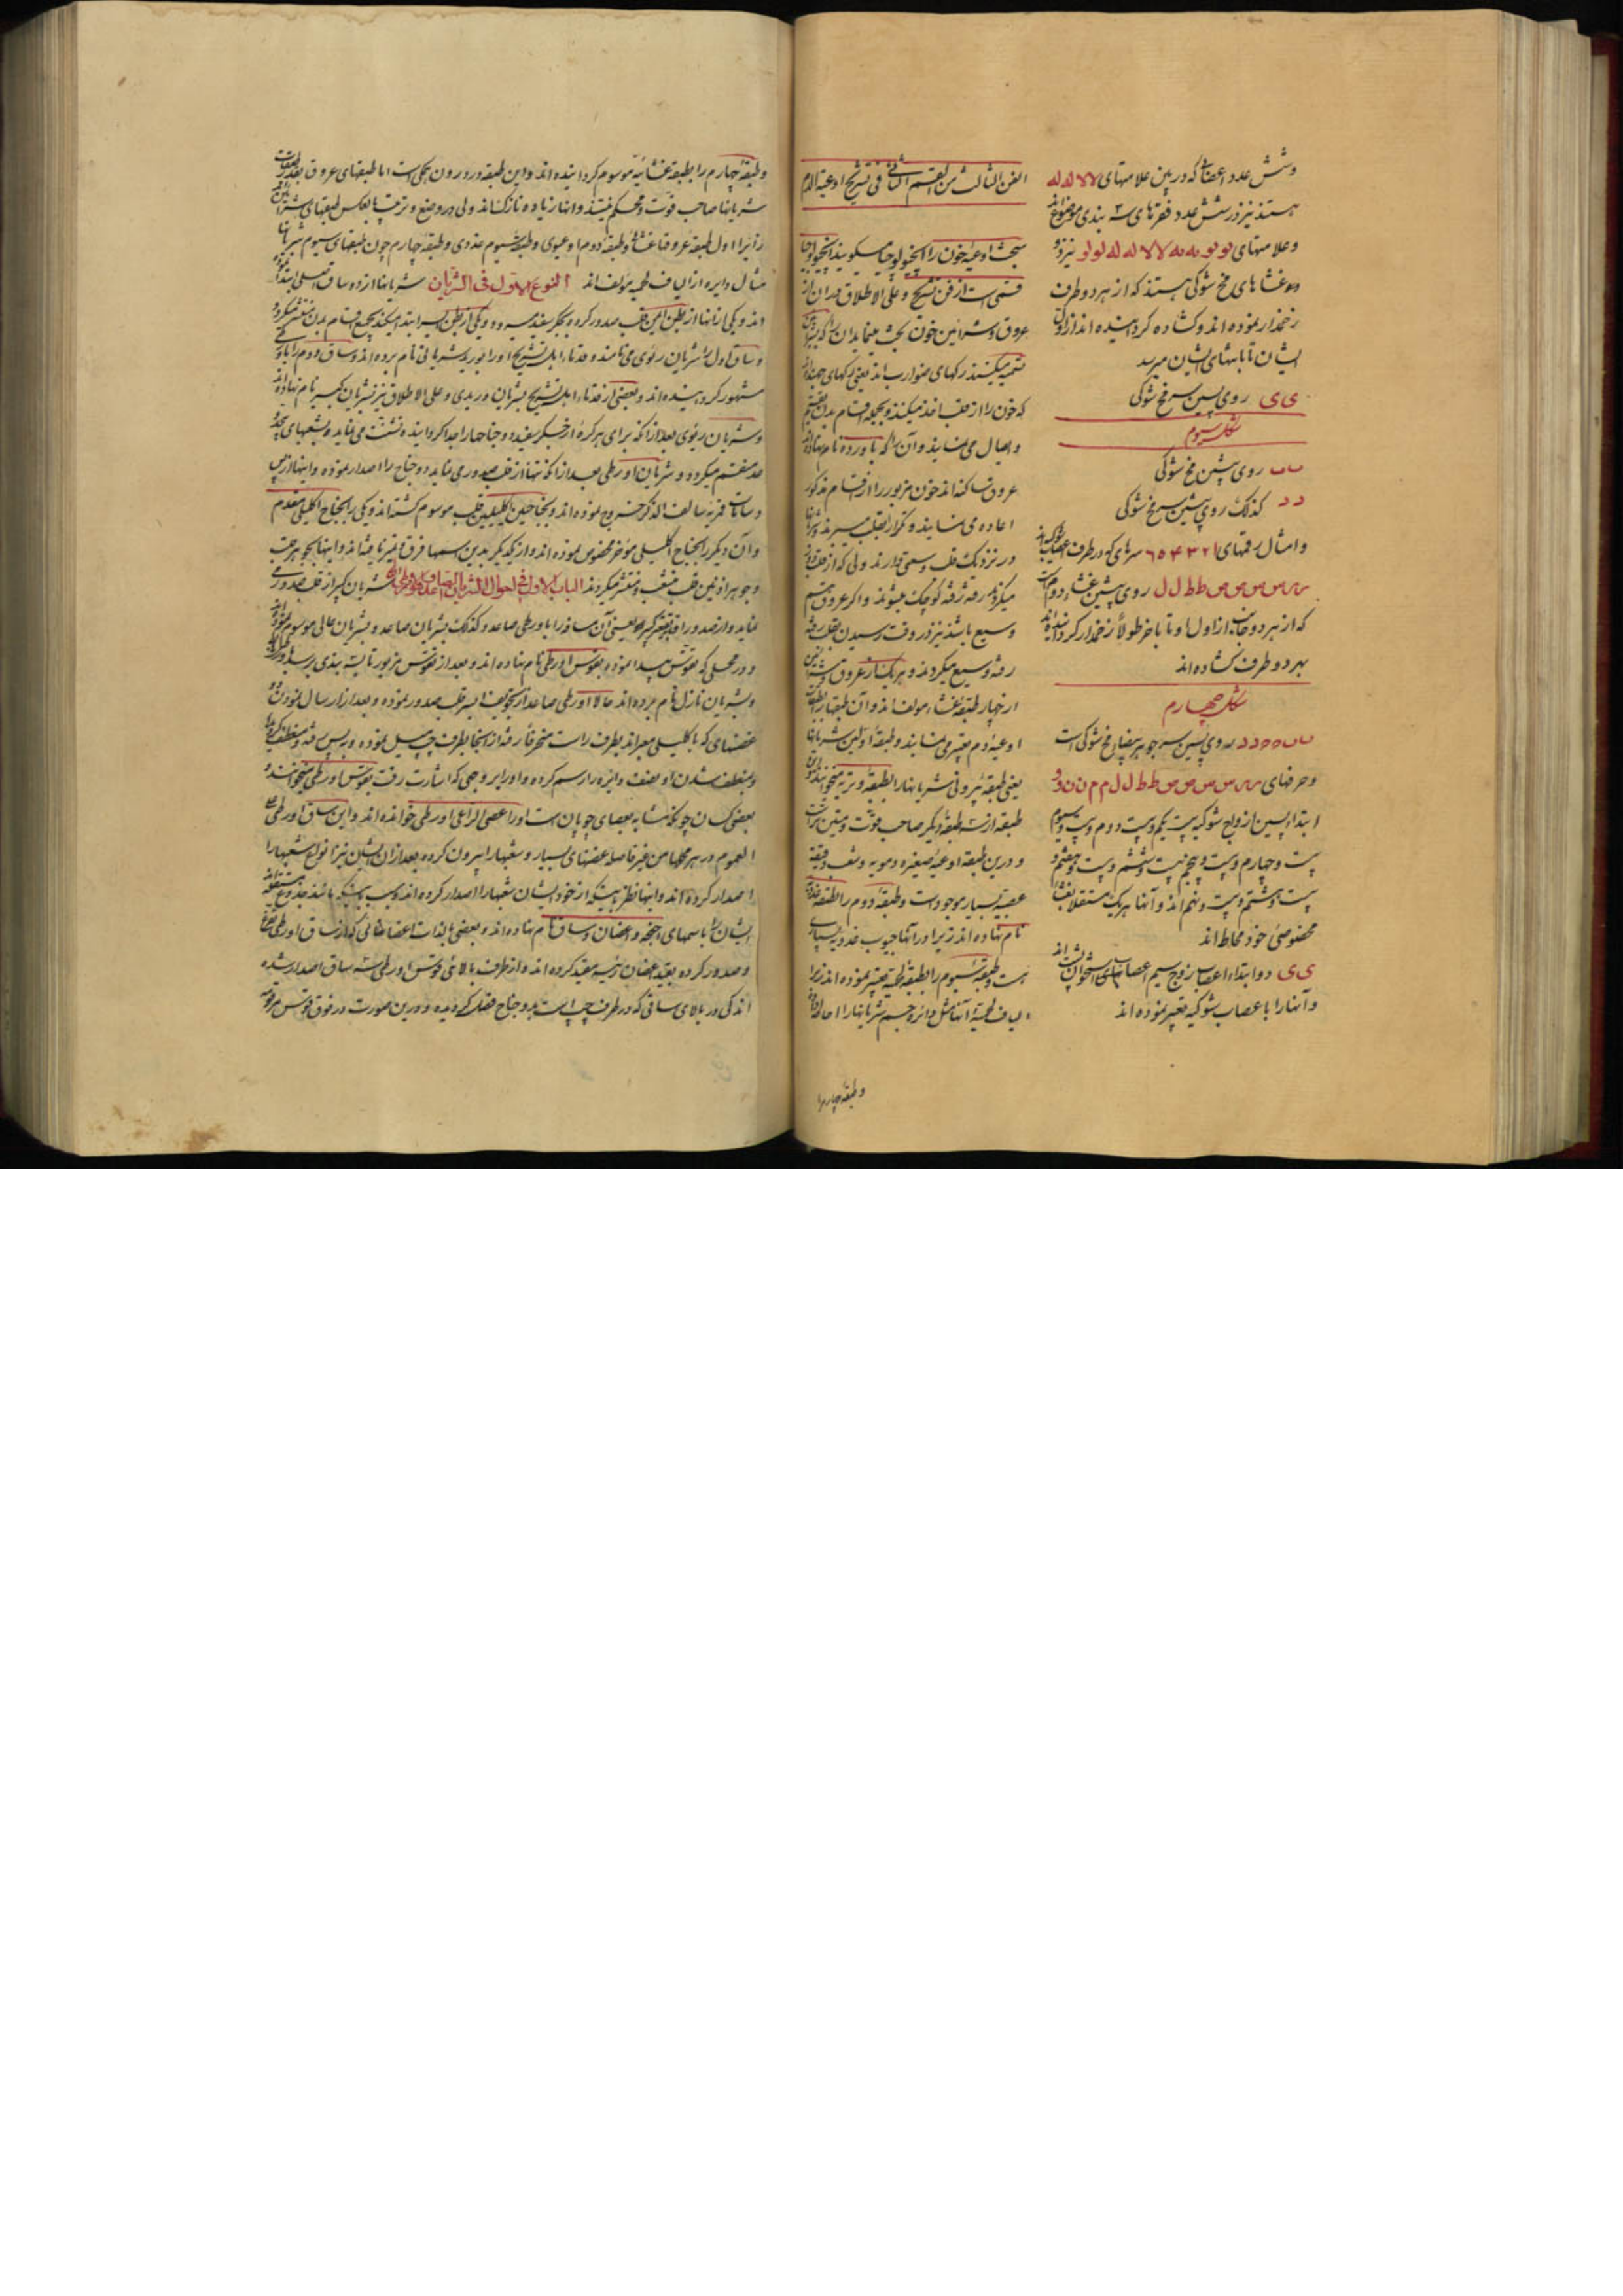 وشش عدد اعصاب که درین علامتهای لالا له له
هستند نیز در شش عدد فقرهای سه بندی موضوع اند
وعلامتهای لو لو به به لالا له له لو لو نیز دو
غشاهای مخ شوکی هستند که از هر دو طرف
رخندار نموده اند وکشاده کردانیده اند از اول
ایشان تا بانتهای ایشان میرسد
ی ی روی پسین مخ شوکی
شکل سیوم
ب ب روی پیشین مخ شوکی
د د کذلک روی پیشین مخ شوکی
وامثال رقمهای ۱ ۲ ۳ ۴ ۵ ۶ سرهای که در طرف اعصاب شوکیه اند
س س س ص ص ط ط ل ل روی پیشین غشاء دوم است
که از هر دو جانب از اول او تا باخر طولاً رخندار کردانیده اند
بهر دو طرف کشاده اند
شکل چهارم
ب ب ه ه د د روی پسین جوهر بیضای مخ شوکی است
وحرفهای س س س ص ص ط ط ل ل م م ن ن و و
ابتداء پسین ازواج شوکیه بیست یکم وبیست دوم وبیست سیوم
بیست وچهارم وبیست وپنجم بیست وششم وبیست وهفتم و
بیست وهشتم وبیست ونهم اند وآنها هر یک مستقلاً بغشاء
مخصوصی خود محاط اند
ی ی دو ابتداء اعصاب زوج سیم اعصابهای استخوان اند
وآنها را باعصاب شوکیه تعبیر نموده اند
الفن الثالث من القسم الثانی فی تشریح اوعیة الدم
مبحث اوعیه خون را انجیولوجیا میکویند انجیولوجیا
قسمی است از فن تشریح وعلی الاطلاق در آن از
عروق وشرایین خون بحث مینماید
تسمیه میکنند رکهای ضوارب اند یعنی رکهای جهنده اند
که خون را از قلب اخذ میکنند وبجمله اقسام بدن تقسیم
وایصال می نمایند وآن را که باورده نام نهاده اند
عروق ساکنه اند خون مزبور را از اقسام مذکور
اعاده می نمایند وتکرار بقلب میبرند شریانها
در نزدیک قلب وسعی دارند ولی که از قلب دور
میکردند رفته رفته کوچک میشوند واکر عروق هم
وسیع باشد نیز در وقت رسیدن بقلب رفته
رفته وسیع میکردند وهر یک از عروق وشرایین
از چهار طبقه غشاء مولف اند وآن طبقها را بطبقات
اوعیه دم تعبیر می نمایند وطبقه اولین شریانها
یعنی طبقه بیرونی شریانها را بطبقه وتریه میخوانند واین
طبقه از سه طبقه دیکر صاحب قوت ومتین تر است
ودرین طبقه اوعیه صغیره دمویه وشعب دقیقه
عصبیه بسیار موجود است وطبقه دوم را بطبقه غددیه
نام نهاده اند زیرا در آنها حبوب غددیه بسیاری
هست وطبقه سیوم را بطبقه لحمیه تعبیر نموده اند زیرا
الیاف لحمیه آنها مثل دائره جسم شریانها را احاطه
وطبقه چهارم را
وطبقه چهارم را بطبقه غشائیه موسوم کردانیده اند واین طبقه در درون همکی است اما طبقهای عروق بقدر طبقات
شریانها صاحب قوت ومحکم نیستند وآنها زیاده نازک اند ولی در وضع وترتیب بالعکس طبقهای شرایین اند
زیرا اول طبقه عروق غشائی وطبقه دوم اوعیوی وطبقه سیوم غددی وطبقه چهارم چون طبقهای سیوم شریانها
مثال دایره از الیاف لحمیه مؤلف اند النوع الاول فی الشریان شریانها از دو ساق اصلی ابتدا کرده
اند ویکی از آنها از بطن ایمن قلب صدور کرده وبجکر سفید میرود ویکی از بطن ایسر ابتدا میکند وبجمیع اقسام بدن منتشر میکردد
وساق اول را شریان رئوی می نامند وقدماء اهل تشریح او را بورید شریانی نام برده اند وساق دوم را باورطی
مشهور کردانیده اند وبعضی از قدماء اهل تشریح بشریان وریدی وعلی الاطلاق نیز بشریان کبیر نام نهاده اند
وشریان رئوی بعد از آنکه برای هر کره از جکر سفید دو جناح را جدا کردانیده تشتت می نماید وبشعبهای بیحد
منقسم میکردد وشریان اورطی بعد از آنکه تنها از قلب صدور می نماید دو جناح را اصدار نموده واینها از پس
دسامات قمریه سالف الذکر خروج نموده اند وبجناحین اکلیلیین قلب موسوم کشته اند ویکی را بجناح اکلیلی مقدم
وآن دیکر را بجناح اکلیلی مؤخر مخصوص نموده اند واز یکدیکر بدین اسمها فرق وتمیز نامیده اند واینها بجوهر قلب
وجوهر اذنین قلب منشعب ومنتشر میکردند الباب الاول فی احوال الشریان الصاعد الاورطی شریان کبیر از قلب صدور می
نماید
ودر محلی که تقوس پیدا نموده بقوس اورطی نام نهاده اند وبعد از تقوس مزبور تا بسه بندی
وبشریان نازل نام برده اند حالا اورطی صاعد از تجویف ایسر قلب صدور نموده وبعد از ارسال نمودن دو
غصنهای که باکلیلی معبر اند بطرف راست منحرفاً رفته از آنجا بطرف چپ میل نموده وبه پس رفته ومنعطف کردیده
ومنعطف شدن او نصف دایره را رسم کرده واو را بر وجهی که اشارت رفت بقوس اورطی میخوانند و
بعضی کسان چونکه مشابه بعصای چوپان است او را عصی الراعی اورطی خوانده اند واین ساق اورطی علی
العموم در هر محلها من غیر فاصل غصنهای بسیار وشعبها را بیرون کرده بعد از آن ایشان نیز انواع شعبها را
اصدار کرده اند واینها نظر باینکه از خود ایشان شعبها را اصدار کرده اند
ایشان را باسمهای اجنحه واغصان وساق نام نهاده اند وبعضی بالذات که از ساق اورطی تفرع
وصدور کرده بقید اغصان رئیسه مقید کرده اند واز طرف بالائی قوس اورطی سه ساق اصدار شده
اند یکی در بالای ساقی که در طرف چپ است بدو جناح منفک کردیده ودرین صورت در فوق قوس مزبور